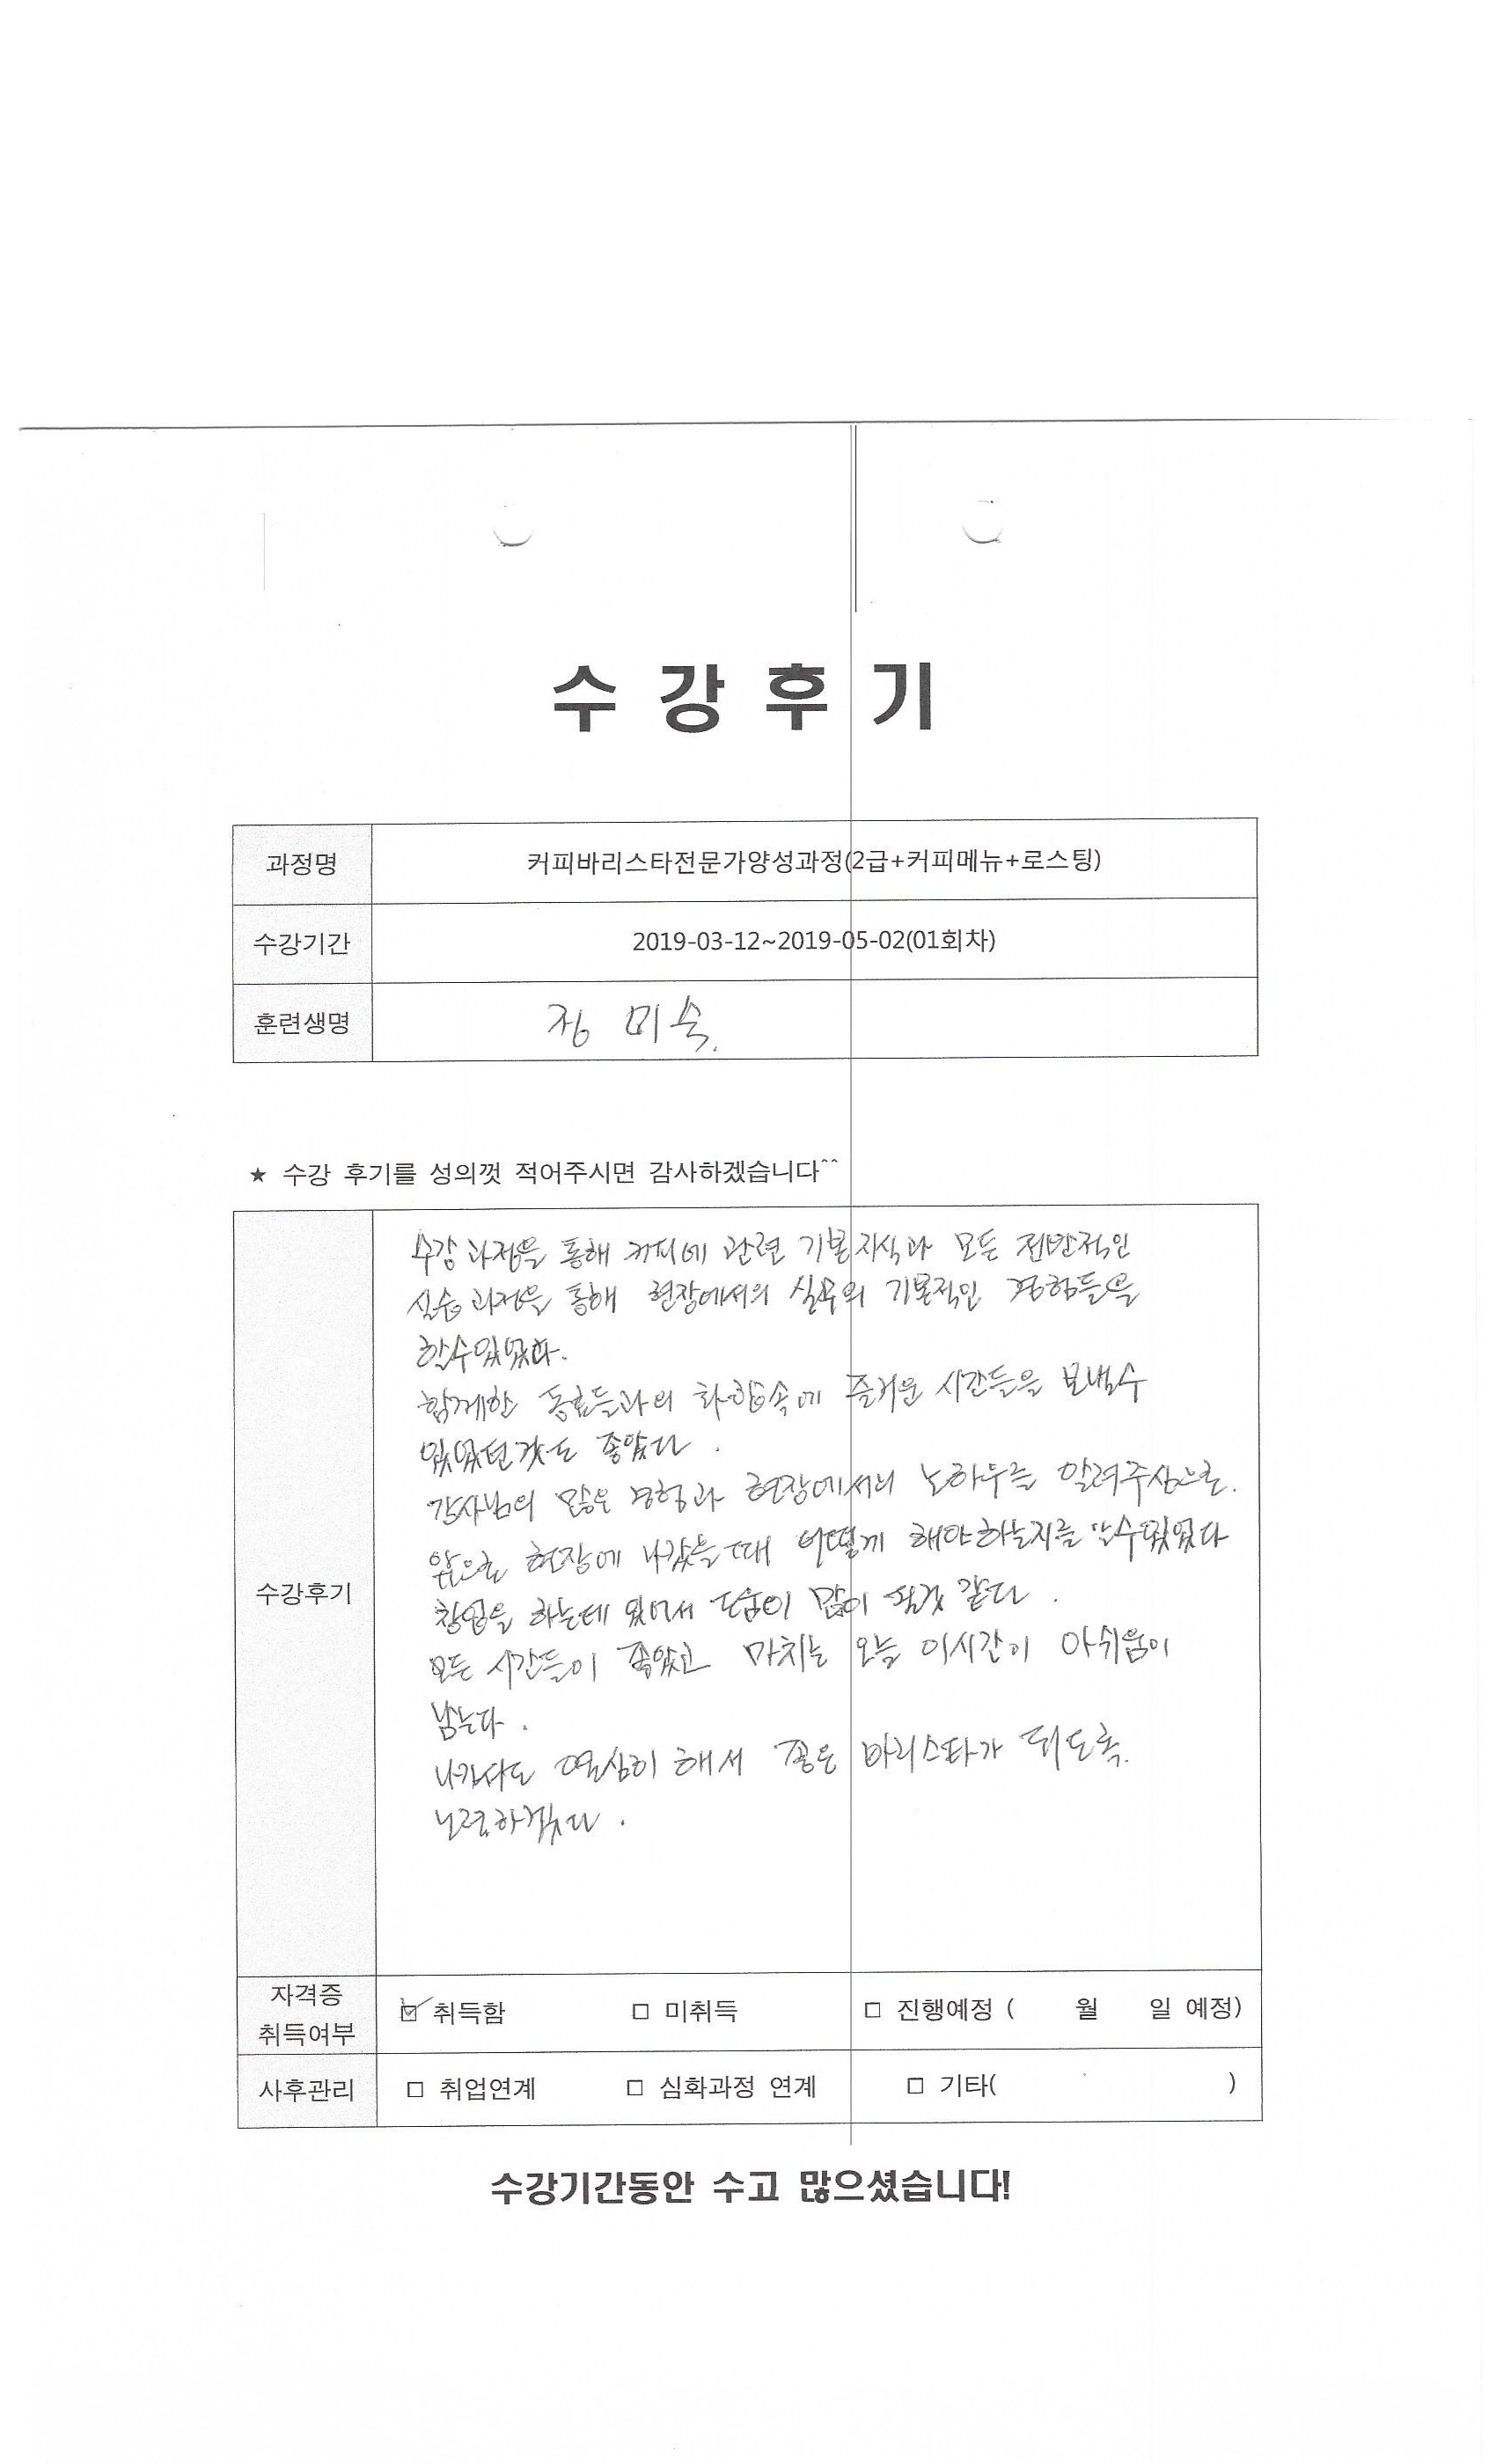 수 강 후 기
과정명 커피바리스타전문가양성과정(2급+커피메뉴+로스팅)
수강기간 2019-03-12~2019-05-02(01회차)
훈련생명 정 미 숙.
★ 수강 후기를 성의껏 적어주시면 감사하겠습니다^^
수강후기
수강 과정을 통해 커피에 관련 기본 지식과 모든 전반적인
실습 과정을 통해 현장에서의 실무의 기본적인 경험들을
할수 있었다.
함께한 동료들과의 화합속에 즐거운 시간들을 보낼수
있었던것도 좋았다.
강사님의 많은 경험과 현장에서의 노하우를 알려주심으로.
앞으로 현장에 나갔을 때 어떻게 해야 하는지를 알수 있었다
창업을 하는데 있어서 도움이 많이 될것 같다.
모든 시간들이 좋았고 마치는 오늘 이시간이 아쉬움이
남는다.
나가서도 열심히 해서 좋은 바리스타가 되도록.
노력하겠다.
자격증
취득여부 ☑ 취득함 □ 미취득 □ 진행예정 ( 월 일 예정)
사후관리 □ 취업연계 □ 심화과정 연계 □ 기타( )
수강기간동안 수고 많으셨습니다!